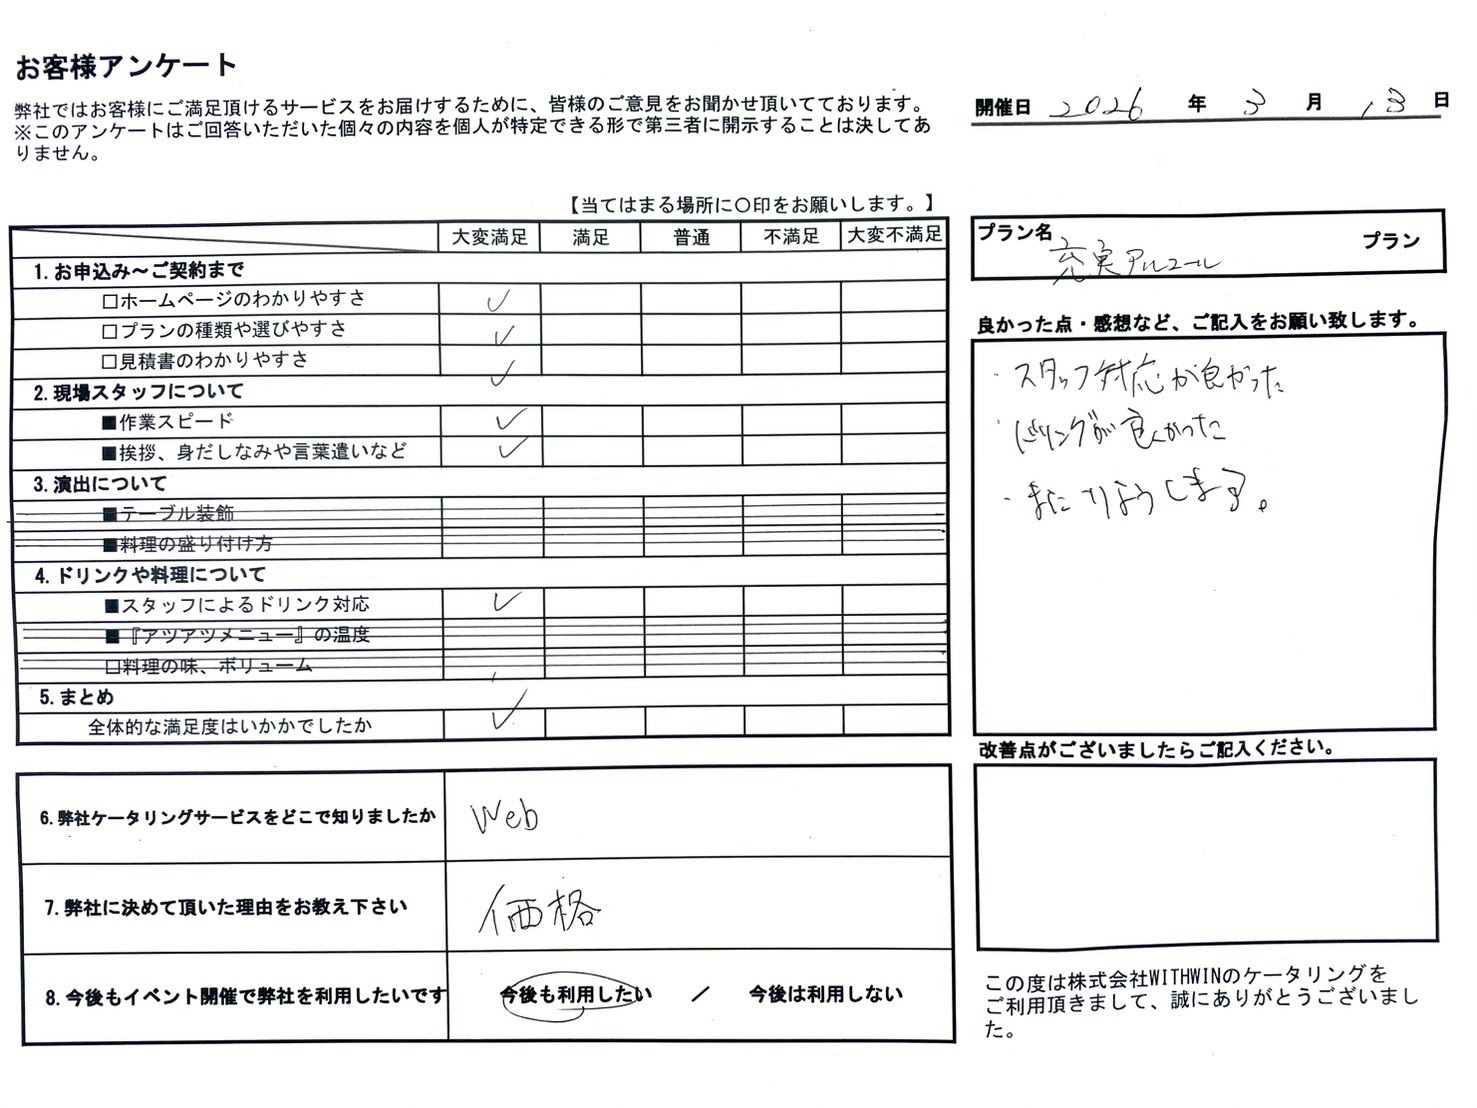 お客様アンケート
弊社ではお客様にご満足頂けるサービスをお届けするために、皆様のご意見をお聞かせ頂いてております。
※このアンケートはご回答いただいた個々の内容を個人が特定できる形で第三者に開示することは決してあ
りません。
開催日 2026 年 3 月 13 日
【当てはまる場所に〇印をお願いします。】
大変満足 満足 普通 不満足 大変不満足
1. お申込み～ご契約まで
□ホームページのわかりやすさ ✓
□プランの種類や選びやすさ ✓
□見積書のわかりやすさ ✓
2. 現場スタッフについて
■作業スピード ✓
■挨拶、身だしなみや言葉遣いなど ✓
3. 演出について
■テーブル装飾
■料理の盛り付け方
4. ドリンクや料理について
■スタッフによるドリンク対応 ✓
■『アツアツメニュー』の温度
□料理の味、ボリューム
5. まとめ
全体的な満足度はいかかでしたか ✓
プラン名 充実アルコール プラン
良かった点・感想など、ご記入をお願い致します。
・スタッフ対応が良かった
・ドリンクが良かった
・またりようします。
改善点がございましたらご記入ください。
6. 弊社ケータリングサービスをどこで知りましたか Web
7. 弊社に決めて頂いた理由をお教え下さい 価格
8. 今後もイベント開催で弊社を利用したいです 今後も利用したい ／ 今後は利用しない
この度は株式会社WITHWINのケータリングを
ご利用頂きまして、誠にありがとうございまし
た。